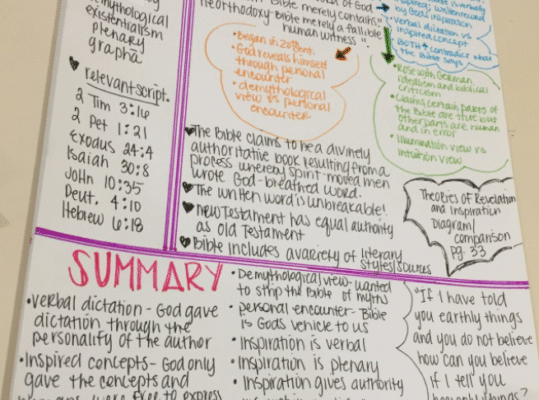 demythological
existentialism
plenary
grapha
relevant script.
2 Tim 3:16
2 Pet 1:21
Exodus 24:4
Isaiah 30:8
John 10:35
Deut. 4:10
Hebrew 6:18
of God
Bible merely contains
neorthodoxy-Bible merely a fallible
human witness
•Began in 20th cent.
•God reveals himself
through personal
encounter
•demythological
view vs personal
encounter
by Gods inspiration
•Verbal dictation vs
inspired concept
•BOTH contradict what
the Bible says
•Rose with German
idealism and biblical
criticism
•Claims certain parts of
the Bible are true but
other parts are human
and in error
•Illumination view vs
intuition view
The Bible claims to be a divinely
authoritative book resulting from a
process whereby spirit-moved men
wrote God-breathed word.
The written word is unbreakable!
New Testament has equal authority
as Old Testament
Bible includes a variety of literary
styles/sources
Theories of Revelation
and Inspiration
Diagram/
comparison
pg. 33
SUMMARY
•verbal dictation - God gave
dictation through the
personality of the author
•Inspired concepts - God only
gave the concepts and
were free to express
•Demythological view-wanted
to strip the Bible of myths
•personal encounter - Bible
is Gods vehicle to us
•Inspiration is verbal
•Inspiration is plenary
•Inspiration gives authority
"If I have told
you earthly things
and you do not believe
how can you believe
if I tell you
heavenly things?